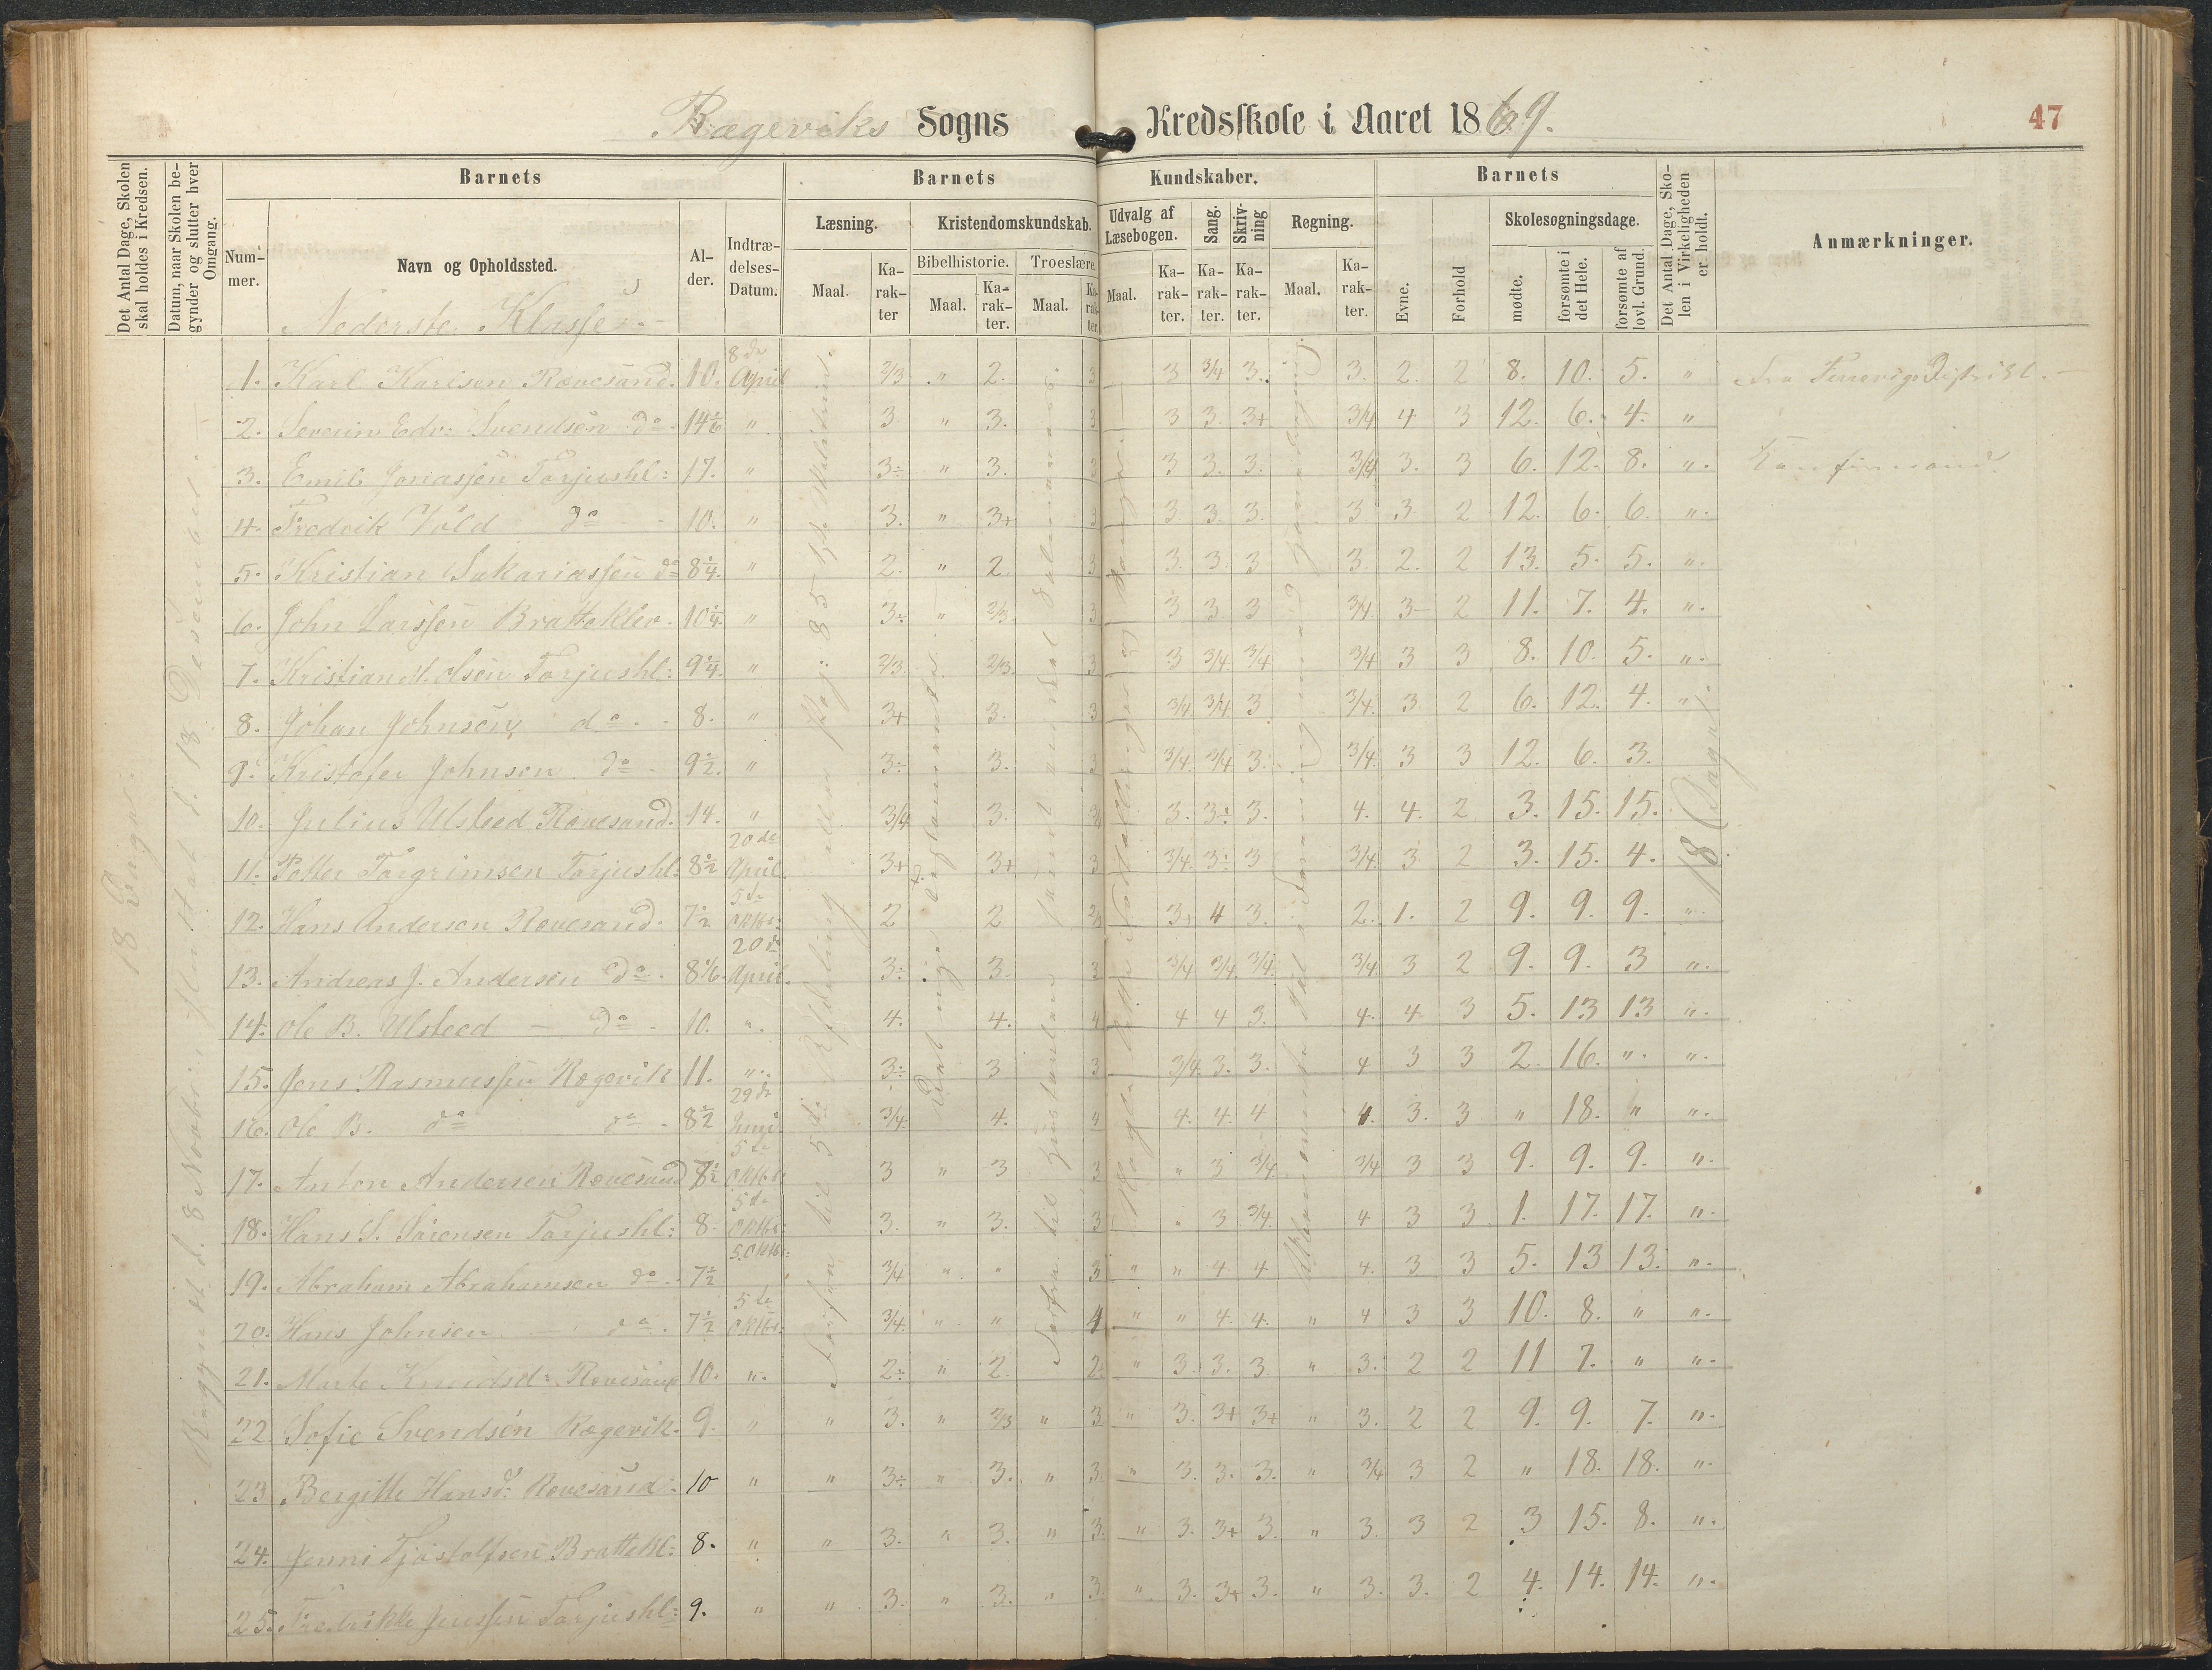 Rægeviks Sogns Kredsskole i Aaret 1869.
47
Det Antal Dage, Skolen skal holdes i Kredsen.
Datum, naar Skolen begynder og slutter hver Omgang.
Barnets
Barnets Kundskaber.
Barnets
Det Antal Dage, Skolen i Virkeligheden er holdt.
Anmærkninger.
Nummer.
Navn og Opholdssted.
Alder.
Indtrædelses-Datum.
Læsning.
Kristendomskundskab.
Udvalg af Læsebogen.
Sang.
Skrivning
Regning.
Evne.
Forhold
Skolesøgningsdage.
Bibelhistorie.
Troeslære.
Maal.
Karakter
Maal.
Karakter.
Maal.
Karakter
Maal.
Karakter.
Karakter.
Karakter.
Maal.
Karakter.
mødte.
forsømte i det Hele.
forsømte af lovl. Grund.
Nederste Klasse.
18 Dage
18 Dage
1. Karl Karlsen Rævesand. 10. 8de April 2/3 " 2. 3 3 3/4 3. 3. 2. 2 8. 10. 5. "
2. Severin Edv: Svendsen do 14 " 3 " 3. 3 3 3. 3+ 3/4 4 3 12. 6. 4. "
3. Emil Jonassen Torjushl: 17. " 3÷ " 3. 3 3 3. 3. 3/4 3. 3 6. 12. 8. " Konfirmand.
4. Fredrik Vold do 10. " 3. " 3+ 3 3 3. 3. 3 3 2 12. 6. 6. "
5. Kristian Sakariassen do 8¼. " 2. " 2. 3 3. 3. 3 3. 2. 2 13. 5. 5. "
6. John Larssen Bratteklev. 10¼. " 3÷ " 2/3. 3 3 3. 3 3/4 3 2 11. 7. 4. "
7. Kristian M. Olsen Torjushl: 9¼. " 2/3. 2/3. 3 3 3/4 3/4 3/4 3 3 8. 10. 5. "
8. Johan Johnsen do. 8. " 3+ 3. 3 3/4 3/4 3 3/4. 3 2 6. 12. 4. "
9. Kristofer Johnsen do 9½. " 3÷ 3. 3 3/4. 3/4 3. 3/4. 3 3 12. 6. 3.
10. Julius Ulsteed Rævesand. 14. " 3/4 3. 3. 3÷ 3. 4. 4. 2 3. 15. 15.
11. Petter Torgrimsen Torjushl: 8½ 20de April. 3+ 3+ 3 3/4. 3÷ 3 3/4. 3 2 3. 15. 4.
12. Hans Andersen Rævesand. 7½ 5de Oktbr: 2 2 3+ 4 3. 2. 1. 2 9. 9. 9. "
13. Andreas J. Andersen do. 8 1/6. 20de April. 3÷ 3. 3 3/4 3/4. 3/4. 3/4. 3 2 9. 9. 3 "
14. Ole B. Ulsteed — do 10. " 4. 4. 4 4. 4 3. 4. 4 3 5. 13 13 "
15. Jens Rasmussen Rægevik 11. " 3÷ 3 3 3/4. 3. 3. 4 3 3 2. 16. " "
16. Ole B. do do. 8½ 29de Juni 3/4. 4. 4 4. 4. 4 4. 3. 3 " 18. " "
17. Anton Andersen Rævesand 7½ 5de Oktbr. 3 " 3 3 " 3 3/4 3/4 3 3 9. 9. 9. "
18. Hans S. Sörensen Torjushl: 8. 5de Oktbr: 3. " 3. 3 " 3 3/4. 4 3 3 1. 17. 17. "
19. Abraham Abrahamsen do. 7½ 5. Oktbr: 3/4 " " 3 " " 4 4 4. 3. 3 5. 13 13. "
20. Hans Johnsen do. 7½ 5te Oktbr. 3/4. " " 4 " " 4. 4. " 4 3 3 10. 8. " "
21. Marte Knudsd: Rævesand 10. " 2÷ " 2. 2 " 3. 3. 3 " 3. 2 2 11 7. " "
22. Sofie Svendsen Rægevik. 9. " " 3. " 2/3 " 3. " 3. 3+ 3+ " 3. 2 2 9. 9. 7. "
23 Bergitte Hansd: Rævesand. 10 " " 3÷ " 3. " 3. " 3. 3. 3. " 3/4 3 2 " 18. 18. "
24. Jenni Tjostolfsen Brattekl: 8. " " 3. " 3. " 3. " 3. 3+ 3. " 3. 3 2 3 15. 8. "
25. Fredrikke Jenssen Torjushl: 9. " " 3. " 3. " 3. " 3. 3+ 3. " 3. 3. 2 4. 14. 14. "